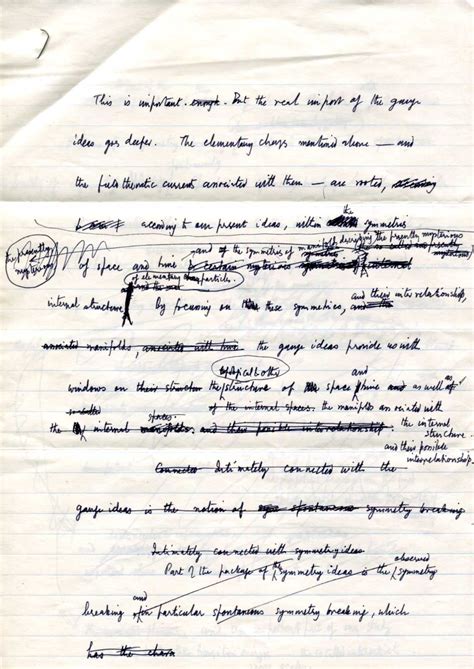 This is important. enough. But the real import of the gauge
ideas goes deeper. The elementary charges mentioned above — and
the field theoretic currents associated with them — are rooted,
according to our present ideas, within the symmetries
the presently mysterious
and of the symmetries of manifold describing the presently mysterious
of space and time
of elementary particles
internal structure By focussing on these symmetries, and their interrelationship,
associated manifolds, associated with time the gauge ideas provide us with
topological & other
windows on their structure the structure of space and time and as well as
of the internal spaces. the manifolds associated with
the internal spaces. and their possible interrelationship. the internal structure
and their possible interrelationship.
Connected Intimately connected with the
gauge ideas is the notion of spontaneous symmetry breaking
Intimately connected with symmetry ideas
Part of the package of the symmetry ideas is the observed symmetry
breaking and in particular spontaneous symmetry breaking, which
has the